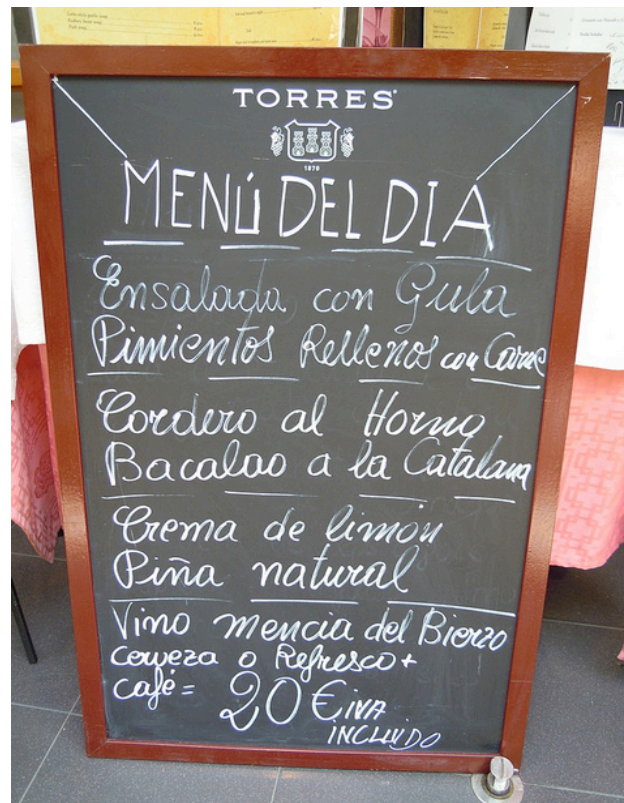 TORRES
1870
MENÚ DEL DIA
Ensalada con Gula
Pimientos Rellenos con Carne
Cordero al Horno
Bacalao a la Catalana
Crema de limón
Piña natural
Vino mencia del Bierzo
Cerveza o Refresco +
Café = 20 € IVA
INCLUIDO